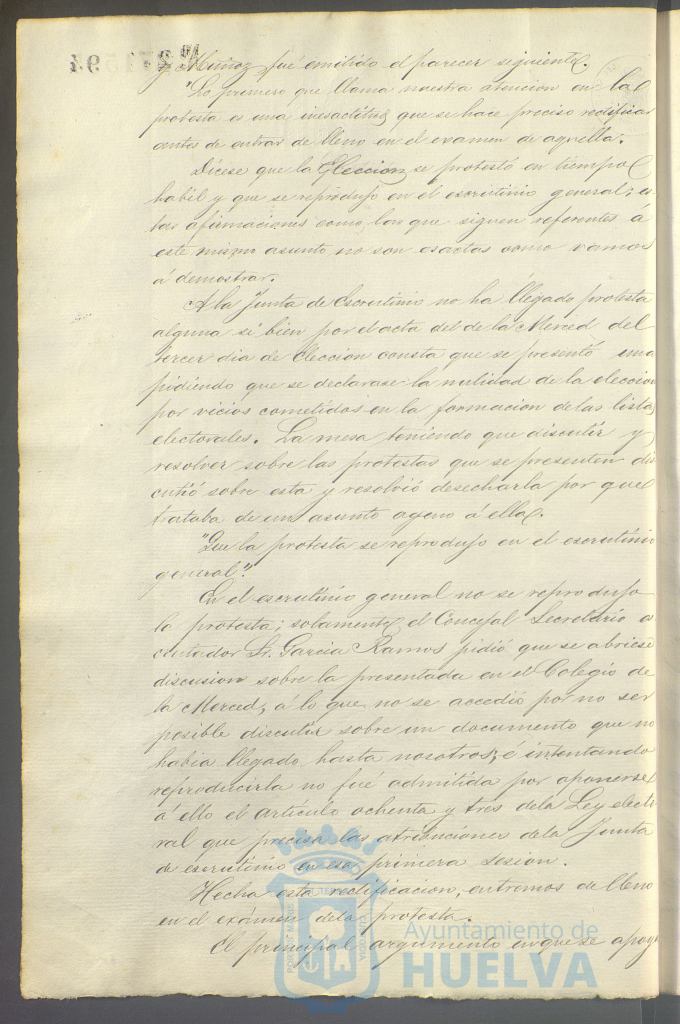 y Muñoz fué emitido el parecer siguiente.
"Lo primero que llama nuestra atencion en la
protesta es una inesactitud que se hace preciso rectificar
antes de entrar de lleno en el examen de aquella.
Dícese que la Eleccion se protestó en tiempo
habil y que se reprodujo en el escrutinio general; es-
tas afirmaciones como las que siguen referentes á
este mismo asunto no son esactas como vamos
á demostrar.
A la Junta de Escrutinio no ha llegado protesta
alguna si bien por el acta del de la Merced del
tercer dia de eleccion consta que se presentó una
pidiendo que se declarase la nulidad de la eleccion
por vicios cometidos en la formacion de las listas
electorales. La mesa teniendo que discutir y
resolver sobre las protestas que se presenten dis
cutió sobre esta y resolvió desecharla por que
trataba de un asunto ageno á ella.
"Que la protesta se reprodujo en el escrutinio
general".
En el escrutinio general no se reprodujo
la protesta; solamente el Concejal Secretario es
crutador Sr. Garcia Ramos pidió que se abriese
discusion sobre la presentada en el Colegio de
la Merced, á lo que no se accedió por no ser
posible discutir sobre un documento que no
habia llegado hasta nosotros; é intentando
reproducirla no fué admitida por oponerse
á ello el artículo ochenta y tres de la Ley electo
ral que precisa las atribuciones de la Junta
de escrutinio en esa primera sesion.
Hecha esta rectificacion, entremos de lleno
en el examen de la protesta.
El principal argumento en que se apoya
Ayuntamiento de
HUELVA